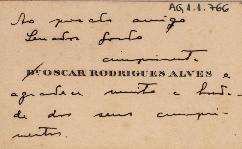 AG.1.1.766
Ao prezado amigo
Senador Souto
cumprimenta
Dr. OSCAR RODRIGUES ALVES e
agradece muito a bonda-
de dos seus cumpri-
mentos.